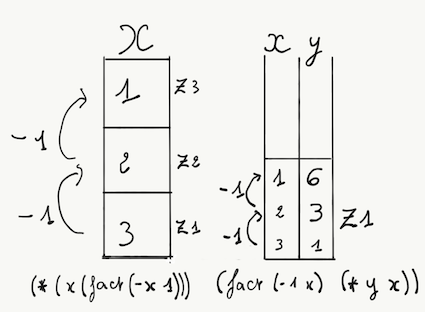 x
1 z3
-1
2 z2
-1
3 z1
(* (x (fact (-x 1)))
x y
1 6
-1
2 3 z1
-1
3 1
(fact (-1 x) (* y x))